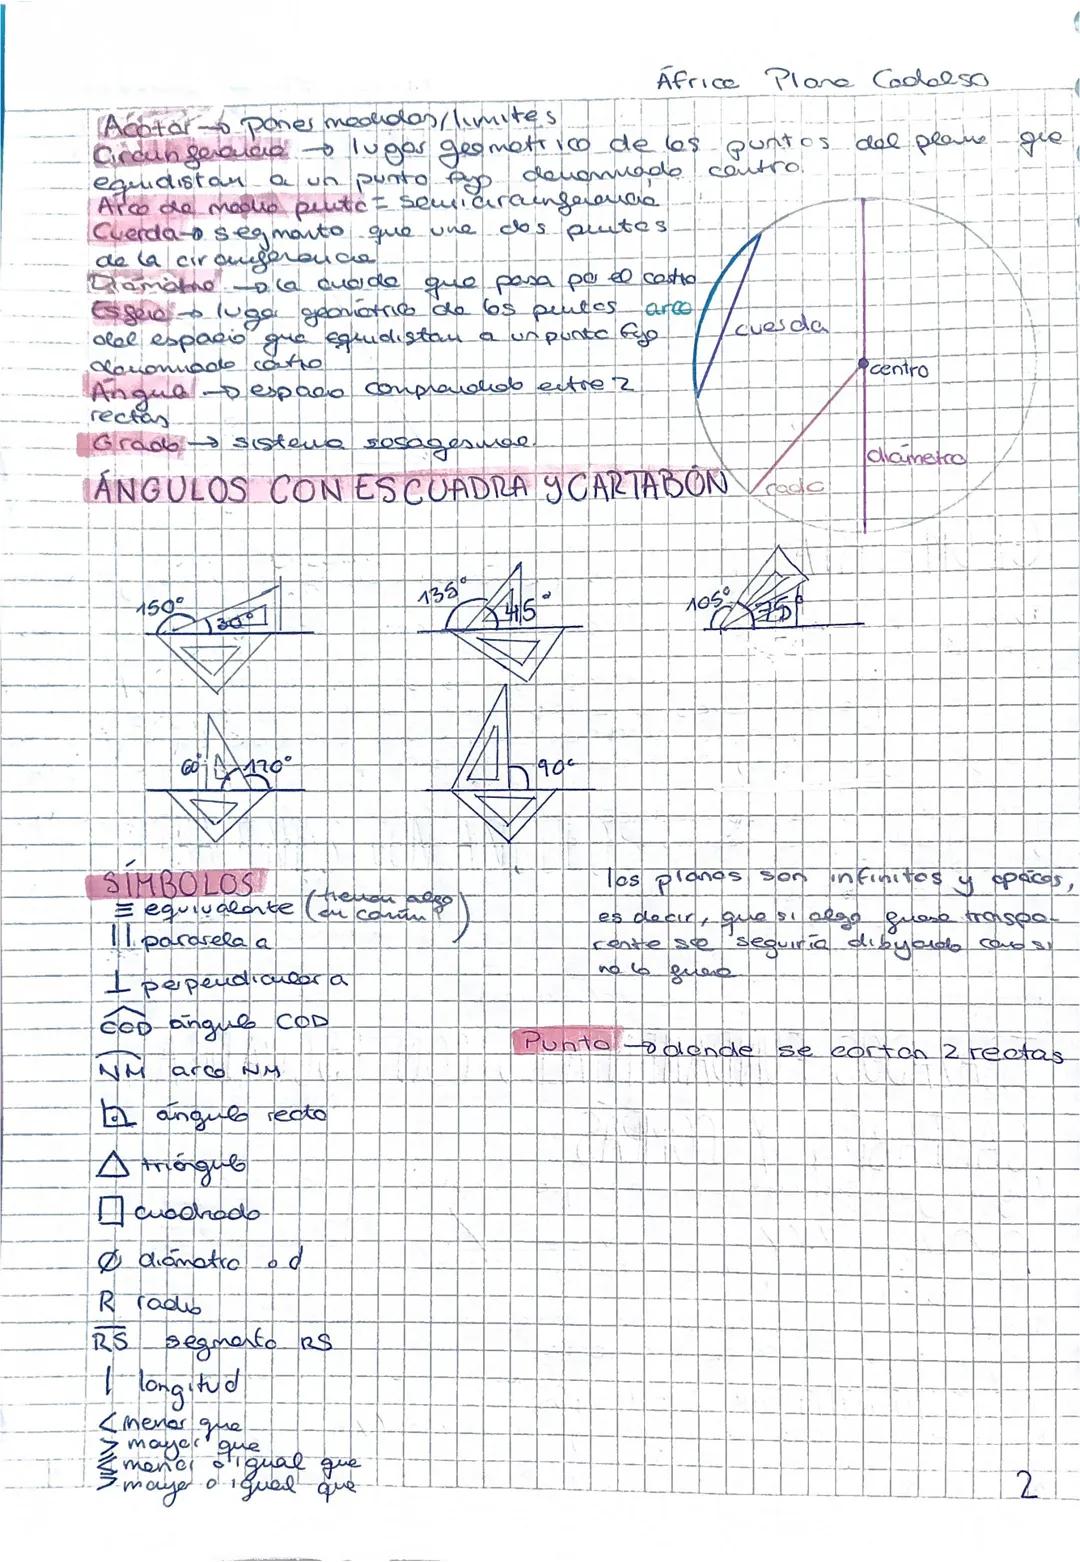 África Plana Cadalso
Acotar → poner medidas/límites
Circunferencia → lugar geométrico de los puntos del plano que
equidistan a un punto fijo denominado centro.
Arco de medio punto = semicircunferencia
Cuerda → segmento que une dos puntos
de la circunferencia
Diámetro → la cuerda que pasa por el centro
Esfera → lugar geométrico de los puntos
del espacio que equidistan a un punto fijo
denominado centro
Ángulo → espacio comprendido entre 2
rectas
Grado → sistema sesagesimal.
arco
cuerda
centro
diámetro
radio
ÁNGULOS CON ESCUADRA Y CARTABÓN
150° 30°
135° 45°
105° 75°
60° 120°
90°
SÍMBOLOS
≡ equivalente (tienen algo en común)
|| paralela a
⊥ perpendicular a
COD ángulo COD
NM arco NM
ángulo recto
△ triángulo
□ cuadrado
Ø diámetro o d
R radio
RS segmento RS
l longitud
< menor que
> mayor que
≤ menor o igual que
≥ mayor o igual que
los planos son infinitos y opacos,
es decir, que si algo fuese traspa-
rente se seguiría dibujando como si
no lo fuera
Punto → donde se cortan 2 rectas
2